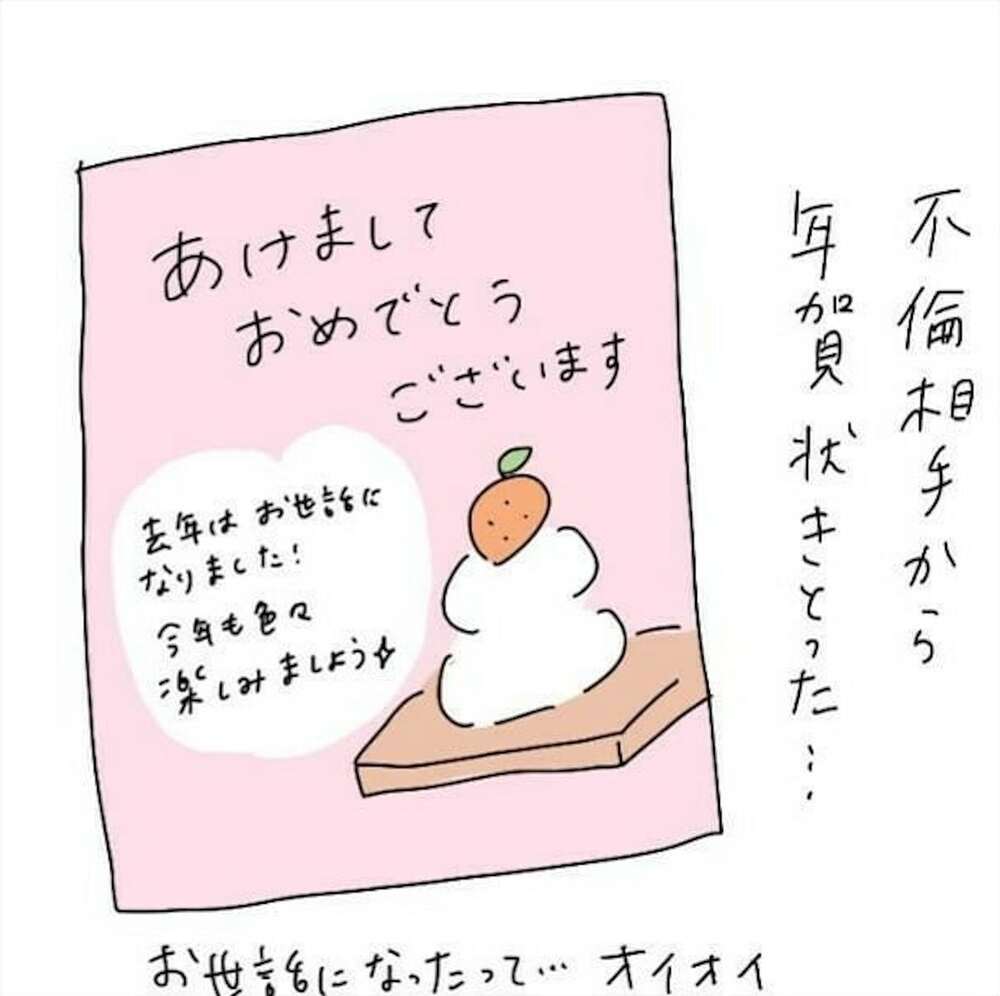 不倫相手から
年賀状きとった…
あけまして
おめでとう
ございます
去年はお世話に
なりました!
今年も色々
楽しみましょう☆
お世話になったって… オイオイ